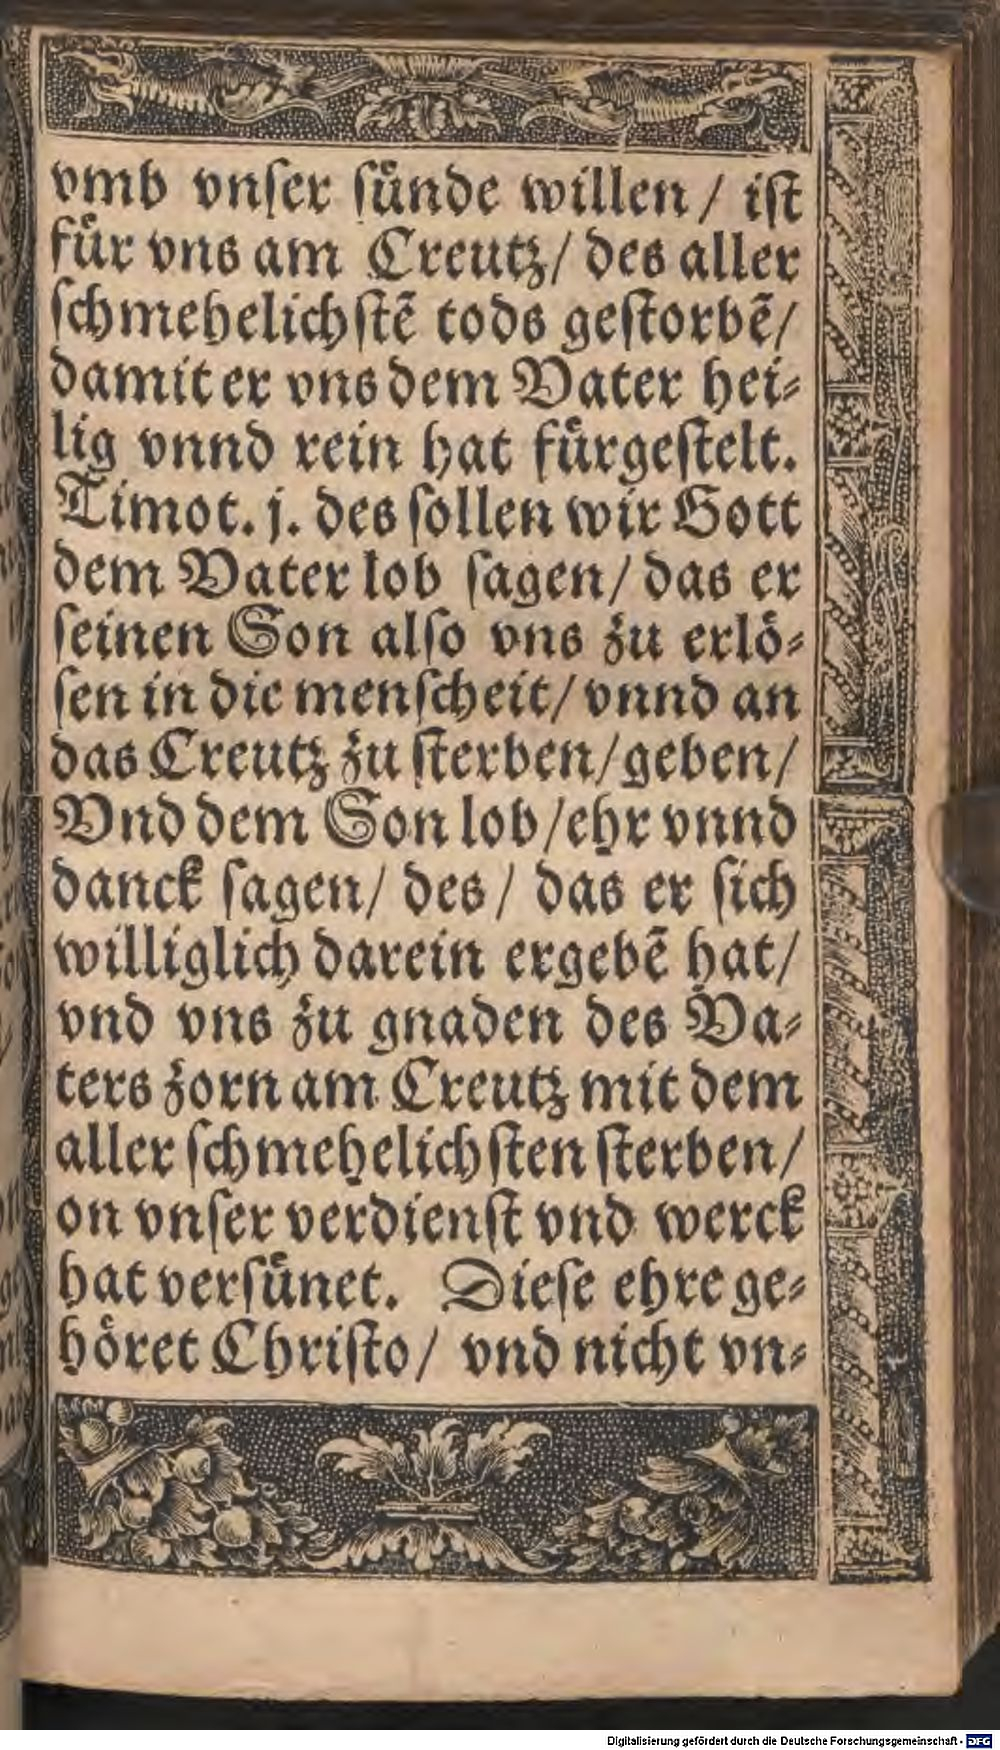 vmb vnſer ſuͤnde willen / iſt
fuͤr vns am Creutz / des aller
ſchmehelichſtẽ tods geſtorbẽ /
damit er vns dem Vater hei⸗
lig vnnd rein hat fuͤrgeſtelt.
Timot. j. des ſollen wir Gott
dem Vater lob ſagen / das er
ſeinen Son alſo vns zu erloͤ⸗
ſen in die menſcheit / vnnd an
das Creutz zu ſterben / geben /
Vnd dem Son lob / ehr vnnd
danck ſagen / des / das er ſich
williglich darein ergebẽ hat /
vnd vns zu gnaden des Va⸗
ters zorn am Creutz mit dem
aller ſchmehelichſten ſterben /
on vnſer verdienſt vnd werck
hat verſuͤnet. Dieſe ehre ge⸗
hoͤret Chriſto / vnd nicht vn⸗
Digitalisierung gefördert durch die Deutsche Forschungsgemeinschaft - DFG